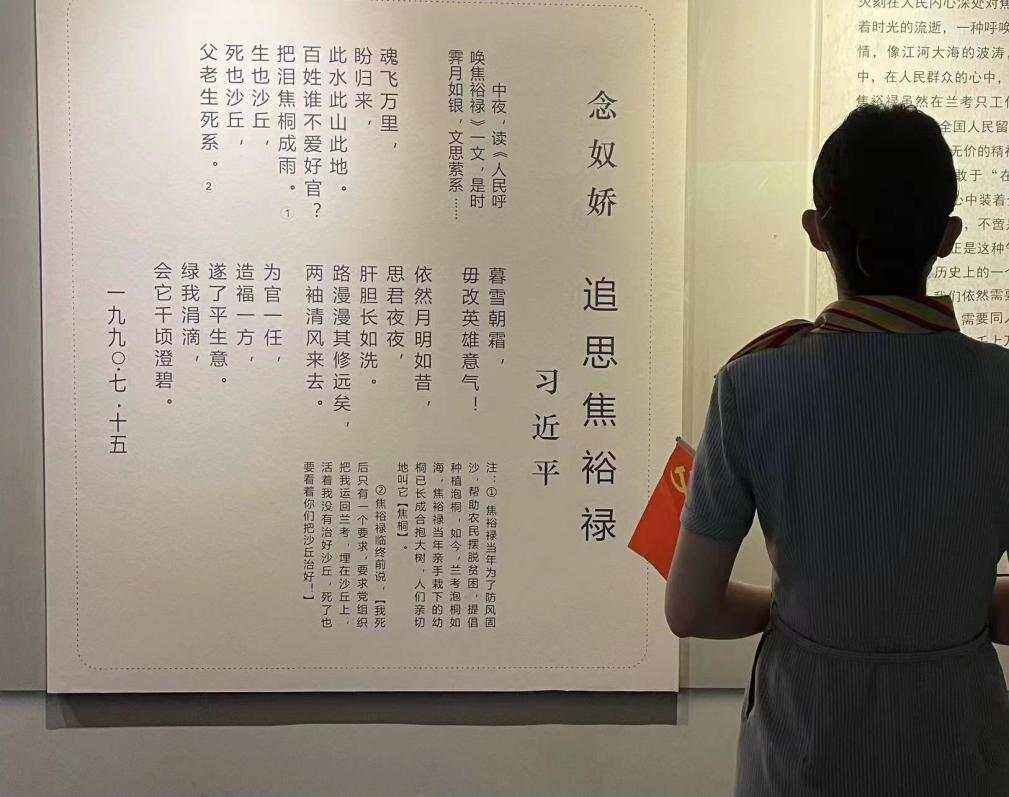 念奴娇 追思焦裕禄
习近平
中夜，读《人民呼
唤焦裕禄》一文，是时
霁月如银，文思萦系……
魂飞万里，
盼归来，
此水此山此地。
百姓谁不爱好官？
把泪焦桐成雨。①
生也沙丘，
死也沙丘，
父老生死系。2
暮雪朝霜，
毋改英雄意气！
依然月明如昔，
思君夜夜，
肝胆长如洗。
路漫漫其修远矣，
两袖清风来去。
为官一任，
造福一方，
遂了平生意。
绿我涓滴，
会它千顷澄碧。
一九九〇·七·十五
注：① 焦裕禄当年为了防风固
沙，帮助农民摆脱贫困，提倡
种植泡桐，如今，兰考泡桐如
海，焦裕禄当年亲手栽下的幼
桐已长成合抱大树，人们亲切
地叫它【焦桐】。
② 焦裕禄临终前说，【我死
后只有一个要求，要求党组织
把我运回兰考，埋在沙丘上，
活着我没有治好沙丘，死了也
要看着你们把沙丘治好！】
刻在人民内心深处对焦
着时光的流逝，一种呼唤
情，像江河大海的波涛，
中，在人民群众的心中，
焦裕禄虽然在兰考只工
全国人民留
无价的精
敢于“在
心中装着
，不啻
正是这种
历史上的一
我们依然需
需要同